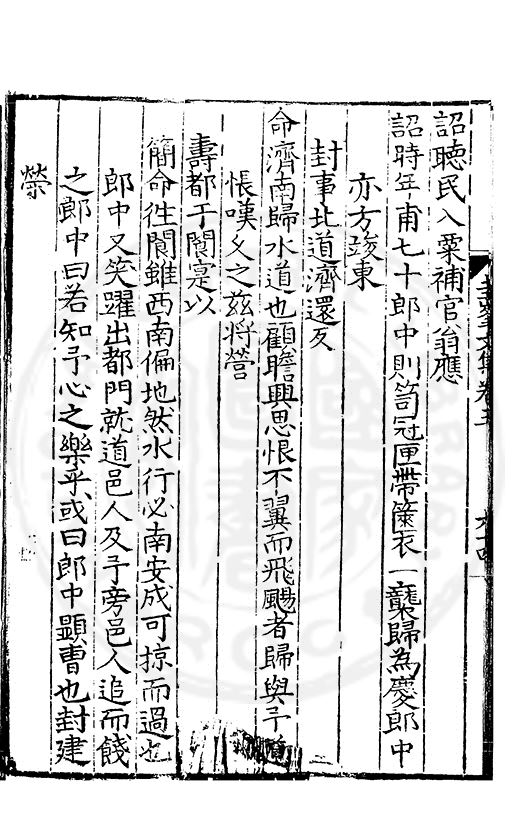 詔聽民入粟補官翁應
詔時年甫七十郎中則笥冠匣帶篋衣一襲歸為慶郎中
亦方竣東
封事北道濟還又
命濟南歸水道也顧瞻興思恨不翼而飛颺者歸與予
悵嘆久之茲將營
壽都于閬寔以
簡命徃閬雖西南偏地然水行必南安成可掠而過也
郎中又笑躍出都門就道邑人及予旁邑人追而餞
之郎中曰若知予心之樂乎或曰郎中顯曹也封建
榮
文集卷五